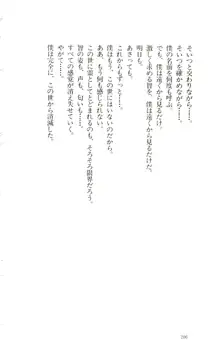 そいつと交わりながら……。
そいつを確かめながら……。
僕の名前を何度も呼ぶ。
でも、僕は遠くから見るだけ。
激しく求める智を、僕は遠くから見るだけだ。
明日も。
あさっても。
これからもずっと……。
ああ、僕は、この世にはいないのだから。
ああ、もう何も感じない……。
この世に霊としてとどまれるのも、そろそろ限界だろう。
智の姿も、声も、匂いも……。
すべての感覚が消え失せていく。
やがて……。
僕は完全に、この世から消滅した。